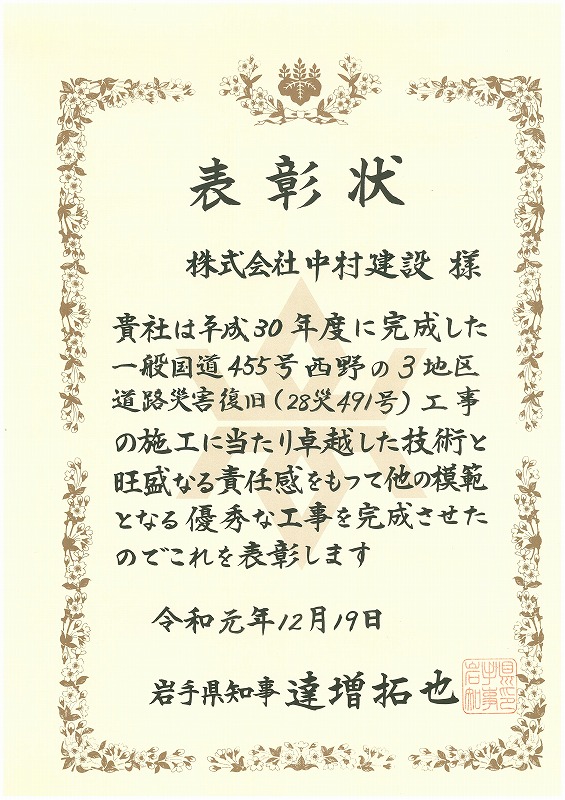 表彰状
株式会社中村建設 様
貴社は平成30年度に完成した
一般国道455号西野の3地区
道路災害復旧(28災491号)工事
の施工に当たり卓越した技術と
旺盛なる責任感をもって他の模範
となる優秀な工事を完成させた
のでこれを表彰します
令和元年12月19日
岩手県知事 達増拓也